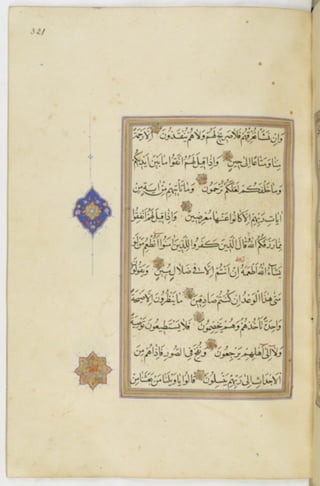 321
وَاِنْ نَشَأْ نُغْرِقْهُمْ فَلَا صَرِيخَ لَهُمْ وَلَا هُمْ يُنْقَذُونَ اِلَّا رَحْمَةً
مِنَّا وَمَتَاعًا اِلٰى حِينٍ وَاِذَا قِيلَ لَهُمُ اتَّقُوا مَا بَيْنَ اَيْدِيكُمْ
وَمَا خَلْفَكُمْ لَعَلَّكُمْ تُرْحَمُونَ وَمَا تَأْتِيهِمْ مِنْ اٰيَةٍ مِنْ
اٰيَاتِ رَبِّهِمْ اِلَّا كَانُوا عَنْهَا مُعْرِضِينَ وَاِذَا قِيلَ لَهُمْ اَنْفِقُوا
مِمَّا رَزَقَكُمُ اللّٰهُ قَالَ الَّذِينَ كَفَرُوا لِلَّذِينَ اٰمَنُوا اَنُطْعِمُ مَنْ لَوْ
يَشَاءُ اللّٰهُ اَطْعَمَهُ اِنْ اَنْتُمْ اِلَّا فِي ضَلَالٍ مُبِينٍ وَيَقُولُونَ
مَتٰى هٰذَا الْوَعْدُ اِنْ كُنْتُمْ صَادِقِينَ مَا يَنْظُرُونَ اِلَّا صَيْحَةً
وَاحِدَةً تَأْخُذُهُمْ وَهُمْ يَخِصِّمُونَ فَلَا يَسْتَطِيعُونَ تَوْصِيَةً
وَلَا اِلٰى اَهْلِهِمْ يَرْجِعُونَ وَنُفِخَ فِي الصُّورِ فَاِذَا هُمْ مِنَ
الْاَجْدَاثِ اِلٰى رَبِّهِمْ يَنْسِلُونَ قَالُوا يَا وَيْلَنَا مَنْ بَعَثَنَا مِنْ